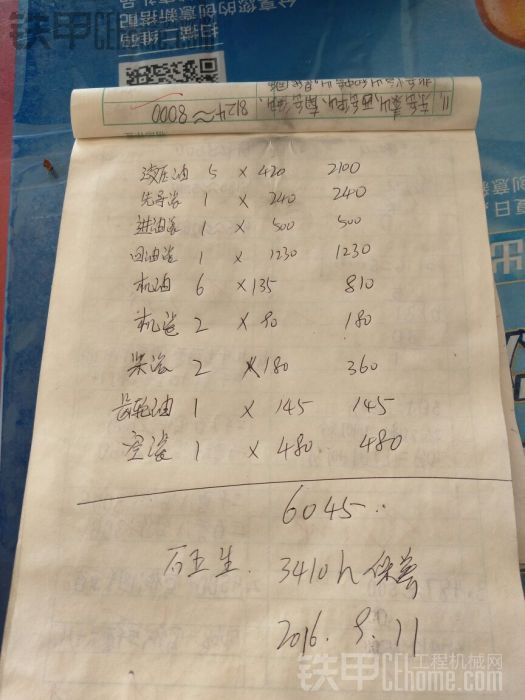 铁甲 CEhome.com
扫描二维码
分享您的创意新搭配
8124≈8000
液压油 5 × 420 2100
先导滤 1 × 240 240
进油滤 1 × 500 500
回油滤 1 × 1230 1230
机油 6 × 135 810
机滤 2 × 90 180
柴滤 2 × 180 360
齿轮油 1 × 145 145
空滤 1 × 480 480
6045..
石玉生. 3410h保养
2016. 9. 11
铁甲 工程机械网
CEhome.com